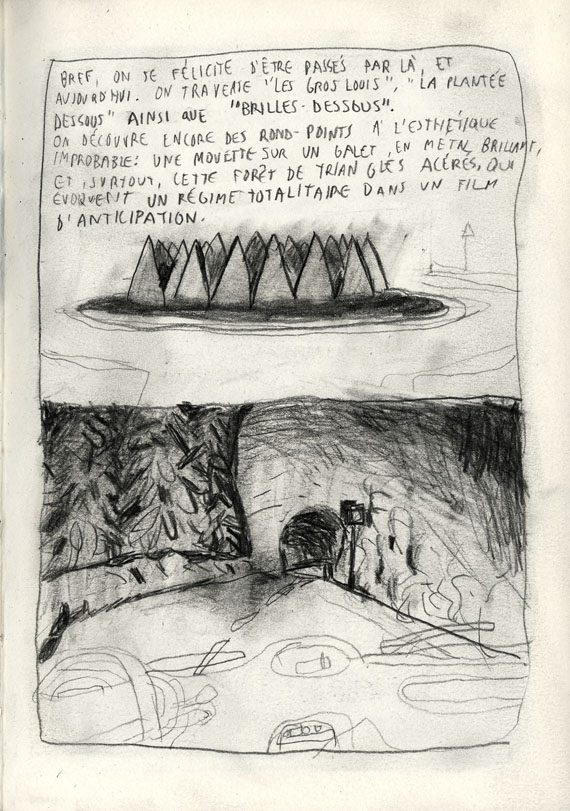 BREF, ON SE FÉLICITE D'ÊTRE PASSÉS PAR LÀ, ET
AUJOURD'HUI. ON TRAVERSE "LES GROS LOUIS", "LA PLANTÉE
DESSOUS" AINSI QUE "BRILLES-DESSOUS".
ON DÉCOUVRE ENCORE DES ROND-POINTS À L'ESTHÉTIQUE
IMPROBABLE: UNE MOUETTE SUR UN GALET, EN METAL BRILLANT,
ET, SURTOUT, CETTE FORÊT DE TRIANGLES ACÉRÉS, QUI
ÉVOQUENT UN RÉGIME TOTALITAIRE DANS UN FILM
D'ANTICIPATION.